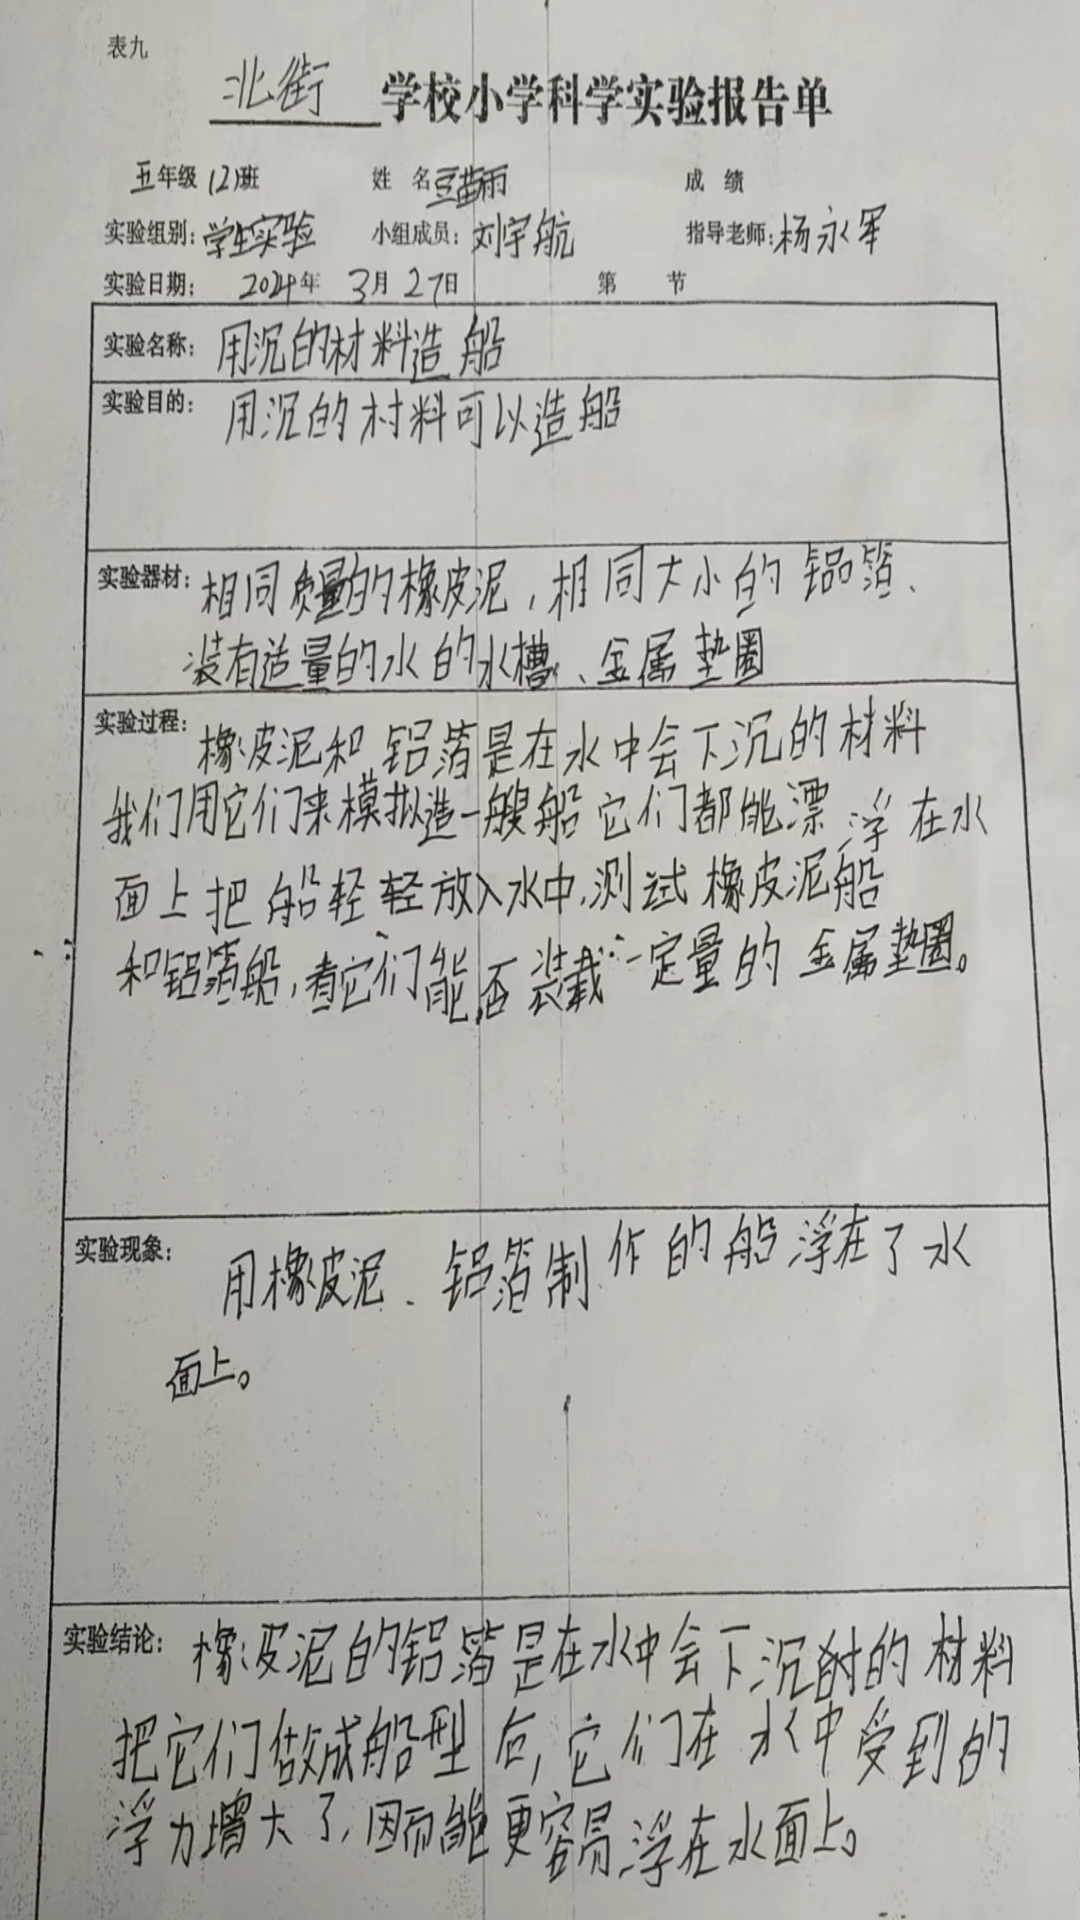 表九
北街 学校小学科学实验报告单
五年级 (2)班 姓 名 豆苗雨 成 绩
实验组别: 学生实验 小组成员: 刘宇航 指导老师: 杨永军
实验日期: 2024年 3月 27日 第 节
实验名称: 用沉的材料造船
实验目的: 用沉的材料可以造船
实验器材: 相同质量的橡皮泥,相同大小的铝箔、
装有适量的水的水槽、金属垫圈
实验过程: 橡皮泥和铝箔是在水中会下沉的材料
我们用它们来模拟造一艘船它们都能漂浮在水
面上把船轻轻放入水中,测试橡皮泥船
和铝箔船,看它们能否装载一定量的金属垫圈。
实验现象: 用橡皮泥、铝箔制作的船浮在了水
面上。
实验结论: 橡皮泥的铝箔是在水中会下沉的材料
把它们做成船型后,它们在水中受到的
浮力增大了,因而能更容易浮在水面上。